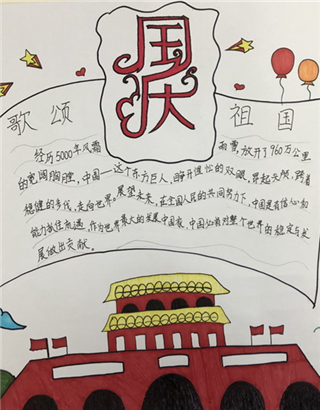 国庆
歌颂 祖国
经历5000年风霜 雨雪放开了960万公里
的宽阔胸襟,中国一这个东方巨人,睁开迷忪的双眼,昂起头颅,跨着
稳健的步伐,走向世界。展望未来,在全国人民的共同努力下,中国是有信心和
能力抓住机遇,作为世界最大的发展中国家,中国必将对整个世界的稳定与发
展做出贡献。